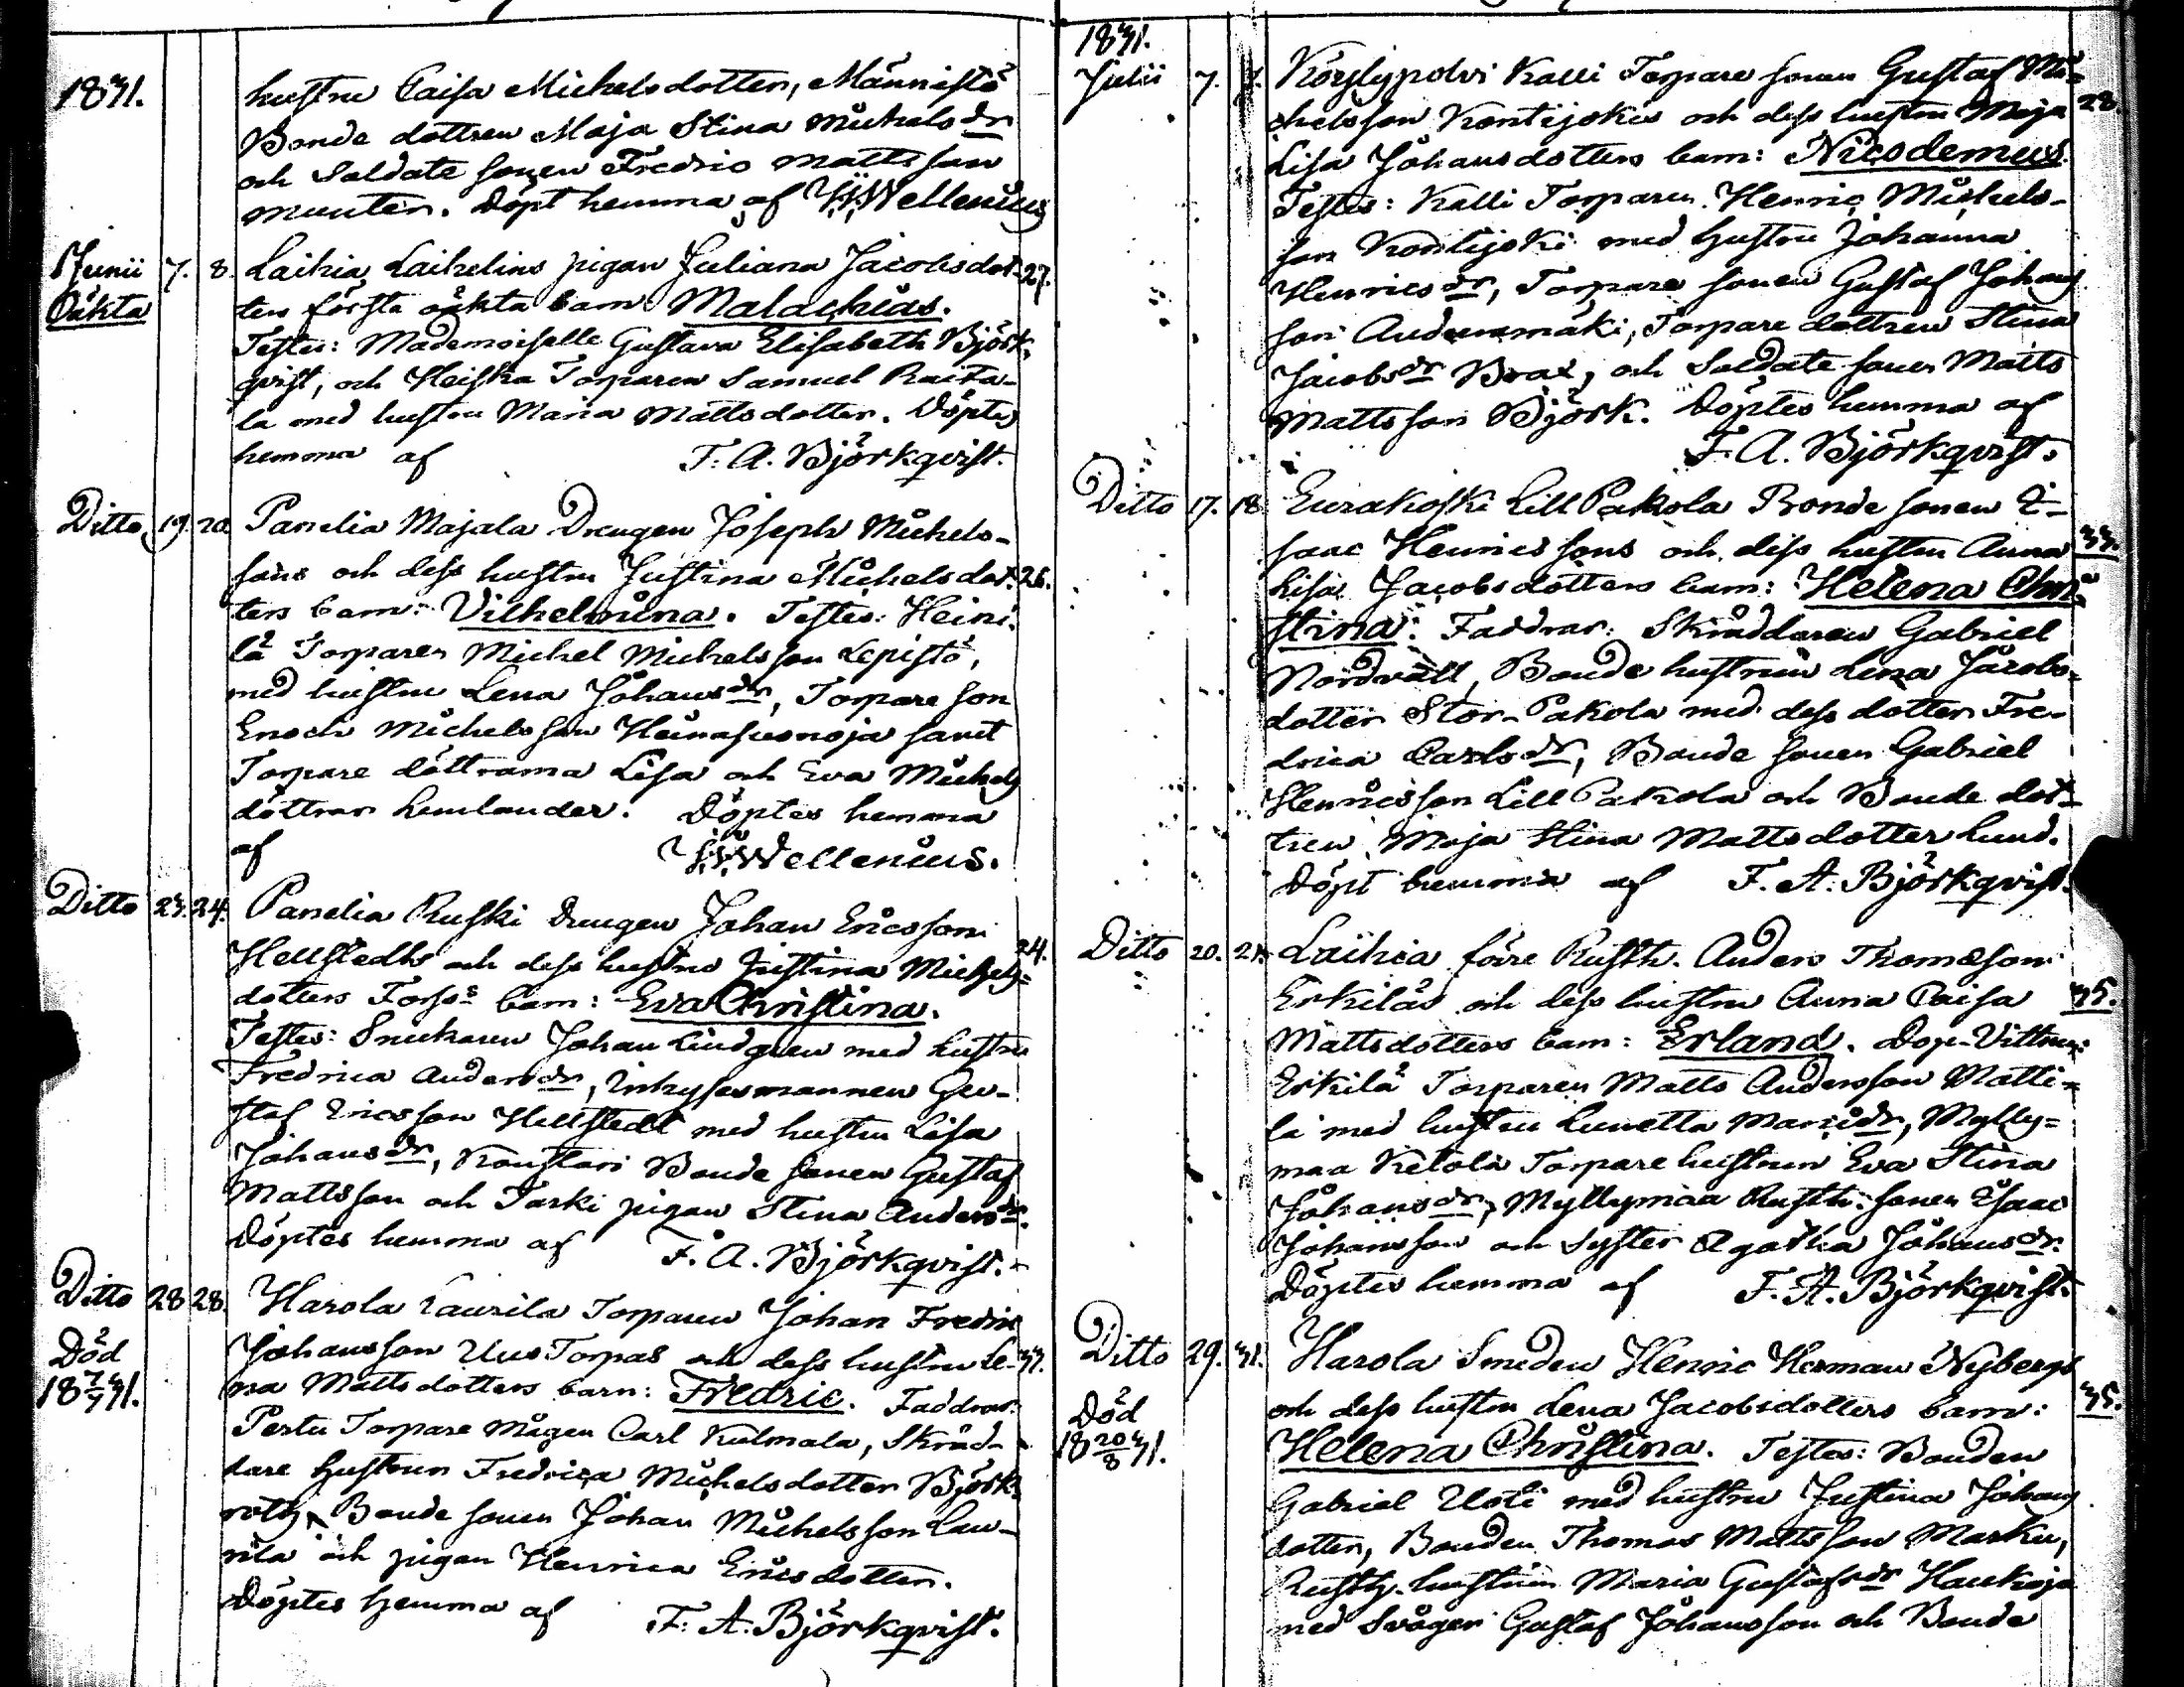 1831.
hustru Caisa Michelsdotter, Männistö
Bonde dottren Maja Stina Michelsdr
och Soldate sonen Fredric Mattsson
Munter. Döpt hemma af Wellenius
Junii 7. 8. Laihia Laikelins pigan Juliana Jacobsdot- 27.
Oäkta
ters första oäkta barn Malachias.
Testes: Mademoiselle Gustava Elisabeth Björk-
qvist, och Heiska Torparen Samuel Raita-
la med hustru Maria Mattsdotter. Döptes
hemma af F. A. Björkqvist.
Ditto 19. 20. Panelia Majala Drengen Joseph Michels-
sons och dess hustru Justina Michelsdot- 26.
ters barn: Vilhelmina. Testes: Heini-
lä Torparen Michel Michelsson Lepistö,
med hustru Lena Johansdr, Torpare son
Enoch Michelsson Heinasuonoja samt
Torpare döttrarna Lisa och Eva Michels
döttrar Lemlander. Döptes hemma
af Wellenius.
Ditto 23. 24. Panelia Ruski Drengen Johan Ericsson
Hellstedts och dess hustru Justina Michels- 24.
dotters Forss barn: Eva Christina.
Testes: Snickaren Johan Lindgren med hustru
Fredrica Andersdr, Inhysesmannen Gu-
staf Ericsson Hellstedt med hustru Lisa
Johansdr, Konstari Bonde sonen Gustaf
Mattsson och Tarki pigan Stina Andersdr.
Döptes hemma af F. A. Björkqvist.
Ditto 28 28. Harola Laurila Torparen Johan Fredric
Johansson Uus Torpas och dess hustru Le- 33.
Död
18 7/7 31.
na Mattsdotters barn: Fredric. Faddrar:
Pertu Torpare Mågen Carl Kulmala, Skräd-
dare hustrun Fredrica Michelsdotter Björk-
roth, Bonde sonen Johan Michelsson Lau-
rila och pigan Henrica Ericsdotter.
Döptes hemma af F. A. Björkqvist.
1831.
Julii 7. Köyslypolvi Kalli Torpare sonen Gustaf Mi-
chelsson Kontijokis och dess hustru Maja 28.
Lisa Johansdotters barn: Nicodemus.
Testes: Kalli Torparen Henric Michels-
son Kontijoki med hustru Johanna
Henricsdr, Torpare sonen Gustaf Johans
son Audenmäki, Torpare dottren Stina
Jacobsdr Brax, och Soldate sonen Matts
Mattsson Björk. Döptes hemma af
F. A. Björkqvist.
Ditto 17. 18. Eurakoski Lill Pakola Bonde sonen I-
saac Henricssons och dess hustru Anna 33.
Lisa Jacobsdotters barn: Helena Chri-
stina. Faddrar: Skräddaren Gabriel
Nordvall, Bonde hustrun Lena Jacobs-
dotter Stor-Pakola med dess dotter Fre-
drica Carlsdr, Bonde sonen Gabriel
Henricsson Lill Pakola och Bonde dot-
tren Maja Stina Mattsdotter Lund.
Döpt hemma af F. A. Björkqvist.
Ditto 20. 21. Laihia före Rusth. Anders Thomæson
Erkiläs och dess hustru Anna Caisa 35.
Mattsdotters barn: Erland. Dop-Vittnen:
Erkilä Torparen Matts Andersson Matti-
la med hustru Lunetta Mariædr, Mylly-
maa Ketola Torpare hustrun Eva Stina
Johansdr, Myllymaa Rusth: sonen Isaac
Johansson och Syster Agatha Johansdr.
Döptes hemma af F. A. Björkqvist.
Ditto 29. 31. Harola Smeden Henric Herman Nybergs
och dess hustru Lena Jacobsdotters barn: 35.
Död
18 20/8 31.
Helena Christina. Testes: Bonden
Gabriel Uoti med hustru Justina Johans
dotter, Bonden Thomas Mattsson Marku,
Rusth. hustrun Maria Gustafsdr Haukoja
med Svåger Gustaf Johansson och Bonde